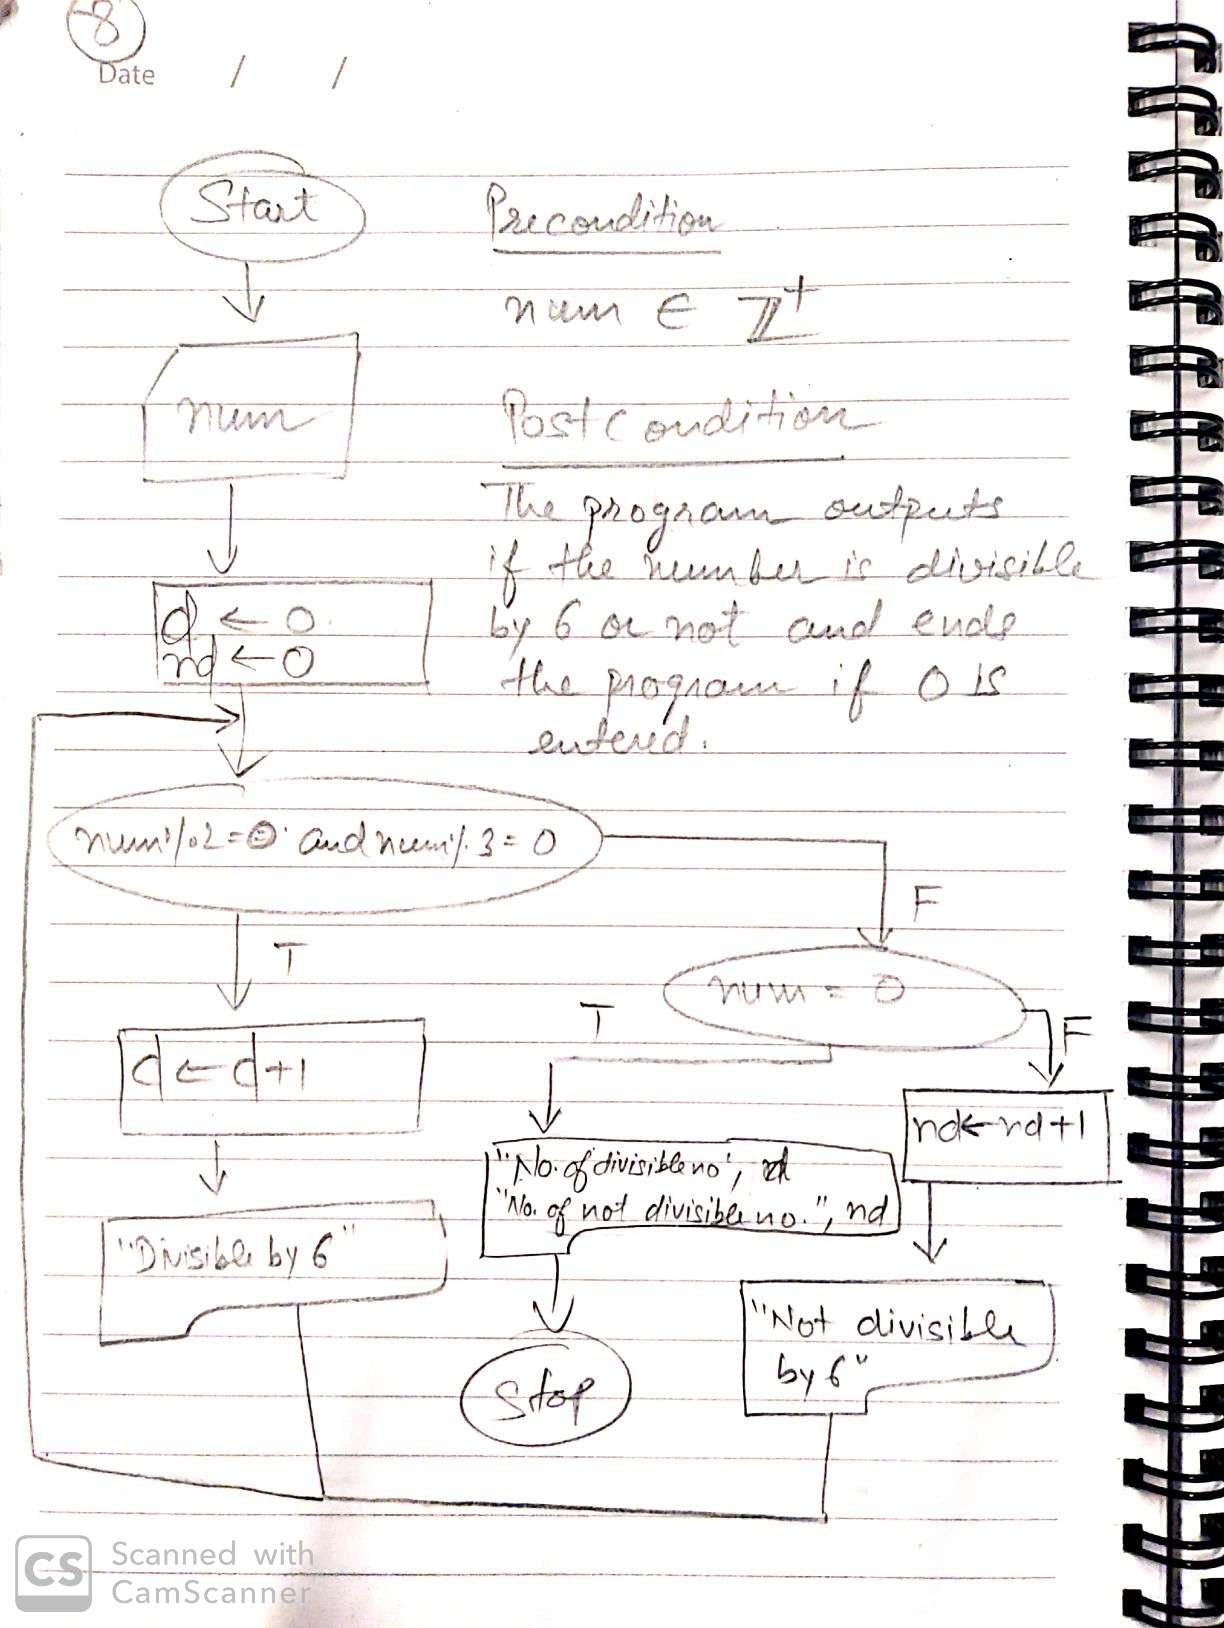 8
Date / /
Start
Precondition
num ∈ ℤ+
num
Postcondition
The program outputs
if the number is divisible
by 6 or not and ends
the program if 0 is
entered.
d ← 0
nd ← 0
num%2=0 and num%3=0
F
T
num = 0
T
F
d ← d+1
nd ← nd+1
"No. of divisible no", d
"No. of not divisible no.", nd
"Divisible by 6"
"Not divisible
by 6"
Stop
CS Scanned with
CamScanner